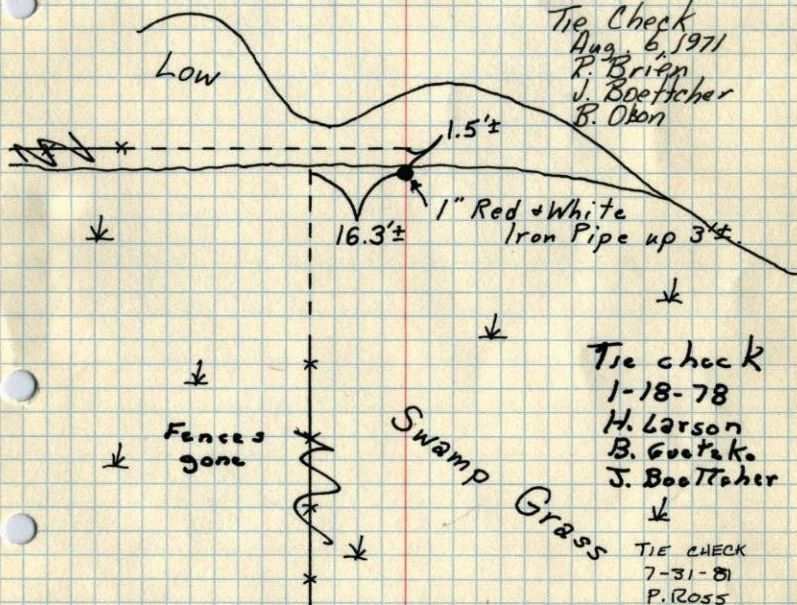 Tie Check
Aug. 6, 1971
P. Brien
J. Boettcher
B. Okon
Low
1.5'±
1" Red & White
Iron Pipe up 3"±.
16.3'±
Tie check
1-18-78
H. Larson
B. Guetzko
J. Boettcher
Fences
gone
Swamp Grass
TIE CHECK
7-31-81
P. ROSS